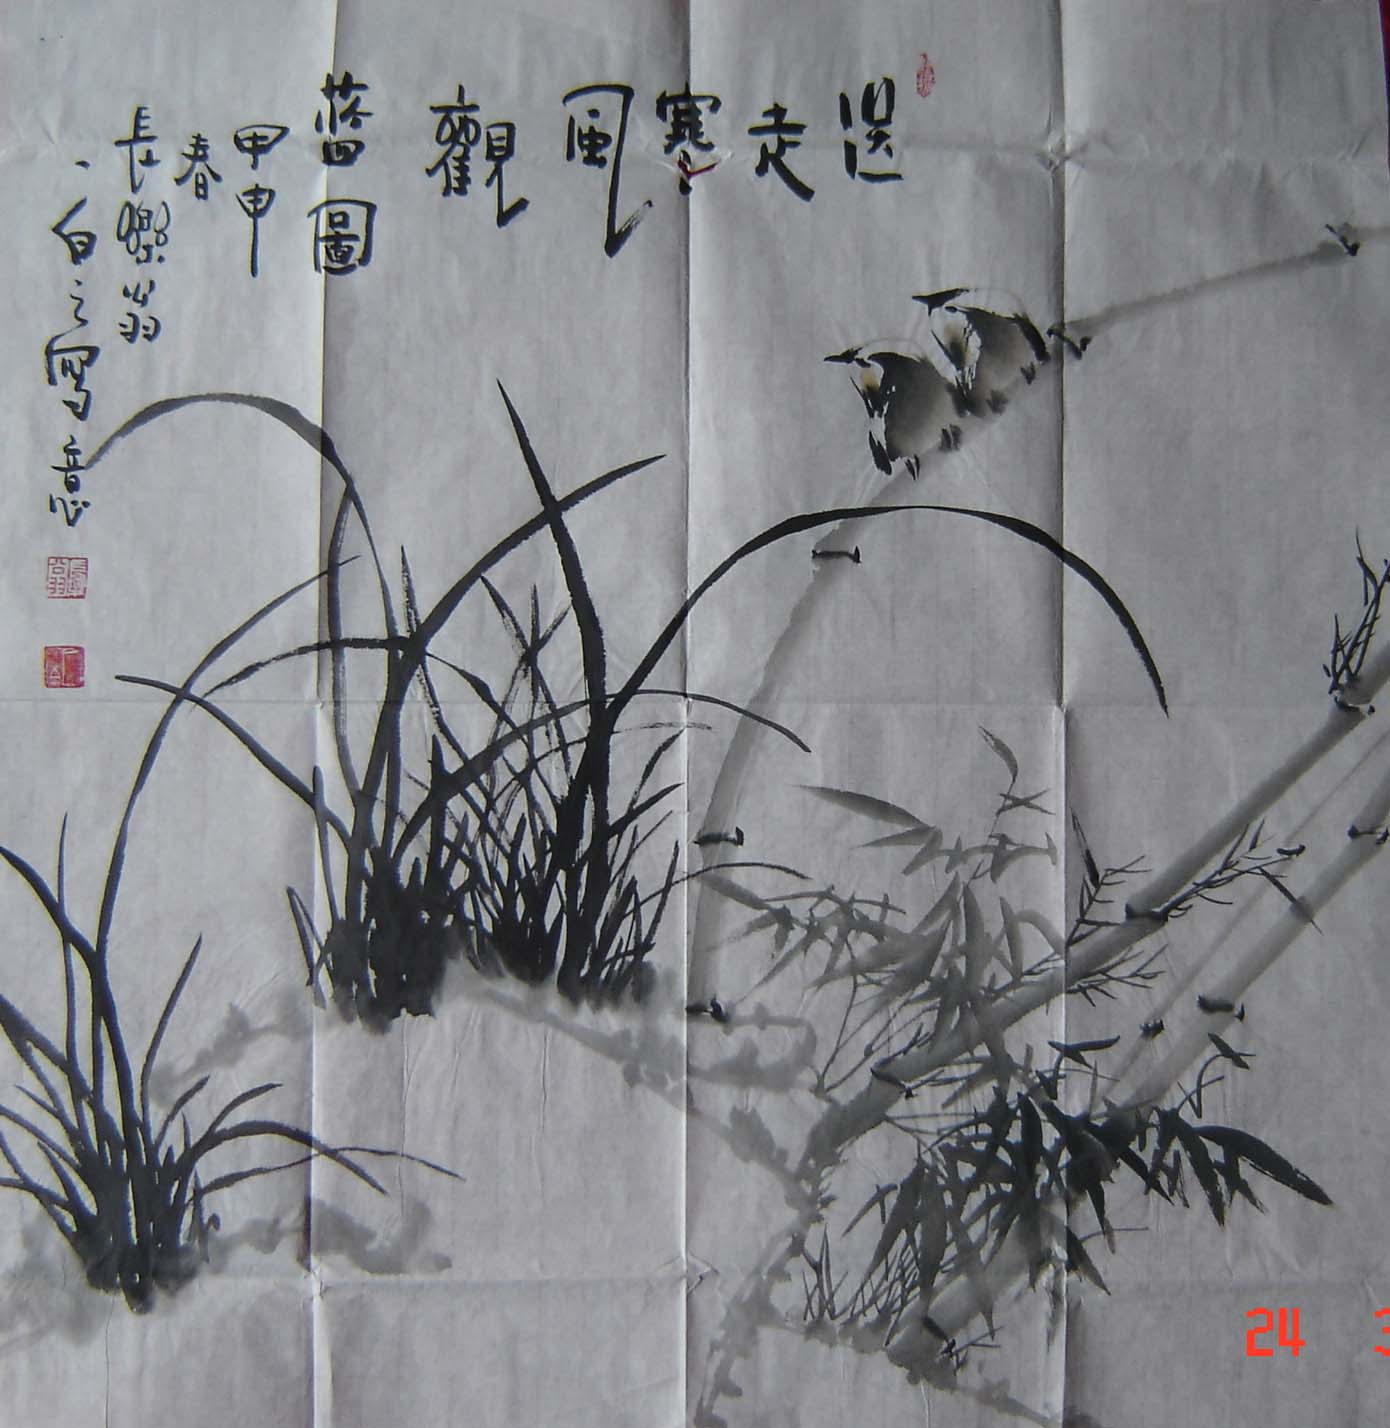 送走寒風觀
蕾圖
甲申
春
長樂翁
白之寫意
24 3